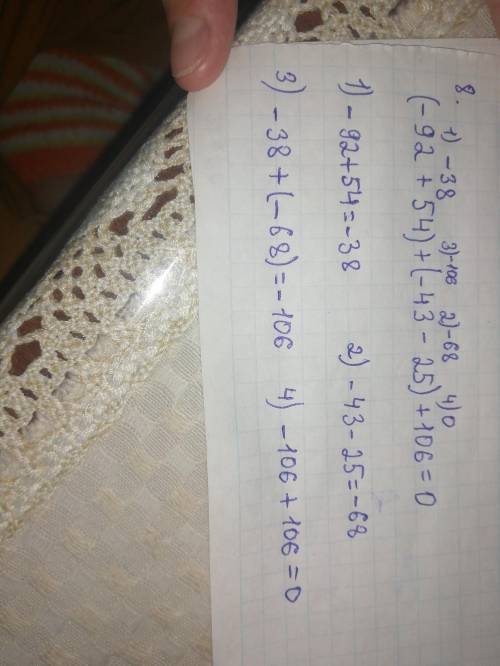 8. 1) -38 3) -106 2) -68 4) 0
(-92 + 54) + (-43 - 25) + 106 = 0
1) - 92 + 54 = -38 2) - 43 - 25 = -68
3) - 38 + (-68) = -106 4) - 106 + 106 = 0